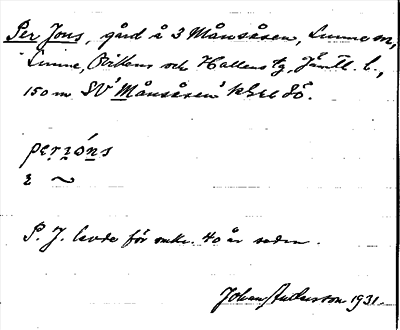 Per Jons, gård å 3 Månsåsen, Sunne sn,
Sunne, Ovikens och Hallens tg, Jämtl. l.,
150 m SV Månsåsen
perons
P. J. levde för omkr. 40 år sedan.
Johan Anderson 1931.